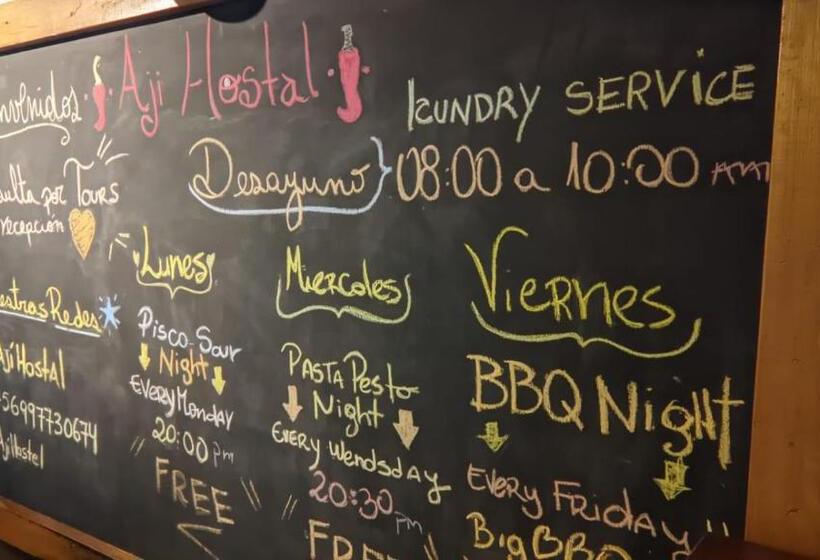 nvenidos Aji Hostal
ulta por Tours
recepción
estras Redes
Ají Hostal
56997730674
Ajihostel
LCUNDRY SERVICE
Desayuno 08:00 a 10:00 AM
Lunes
Pisco-Sour
Night
Every Monday
20:00 pm
FREE
Miercoles
Pasta Pesto
Night
Every Wendsday
20:30 pm
FREE
Viernes
BBQ Night
Every Friday
Big BBQ